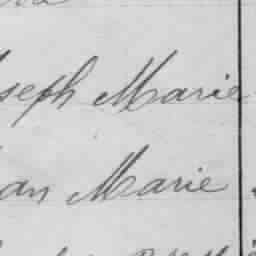 oseph Marie
ean Marie